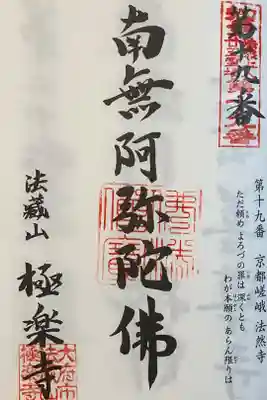 第十九番
第十九番 京都嵯峨 法然寺
ただ頼め よろづの罪は 深くとも
わが本願の あらん限りは
南無阿弥陀佛
法蔵山 極楽寺